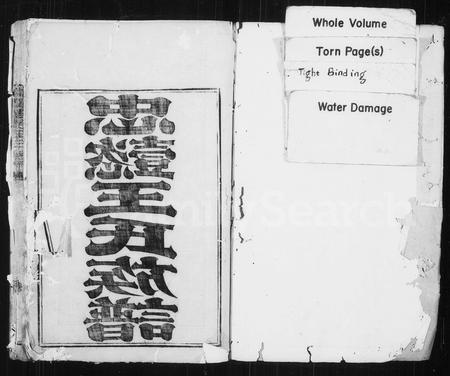 Whole Volume
Torn Page(s)
Tight Binding
Water Damage
忠懿王氏族譜
FamilySearch